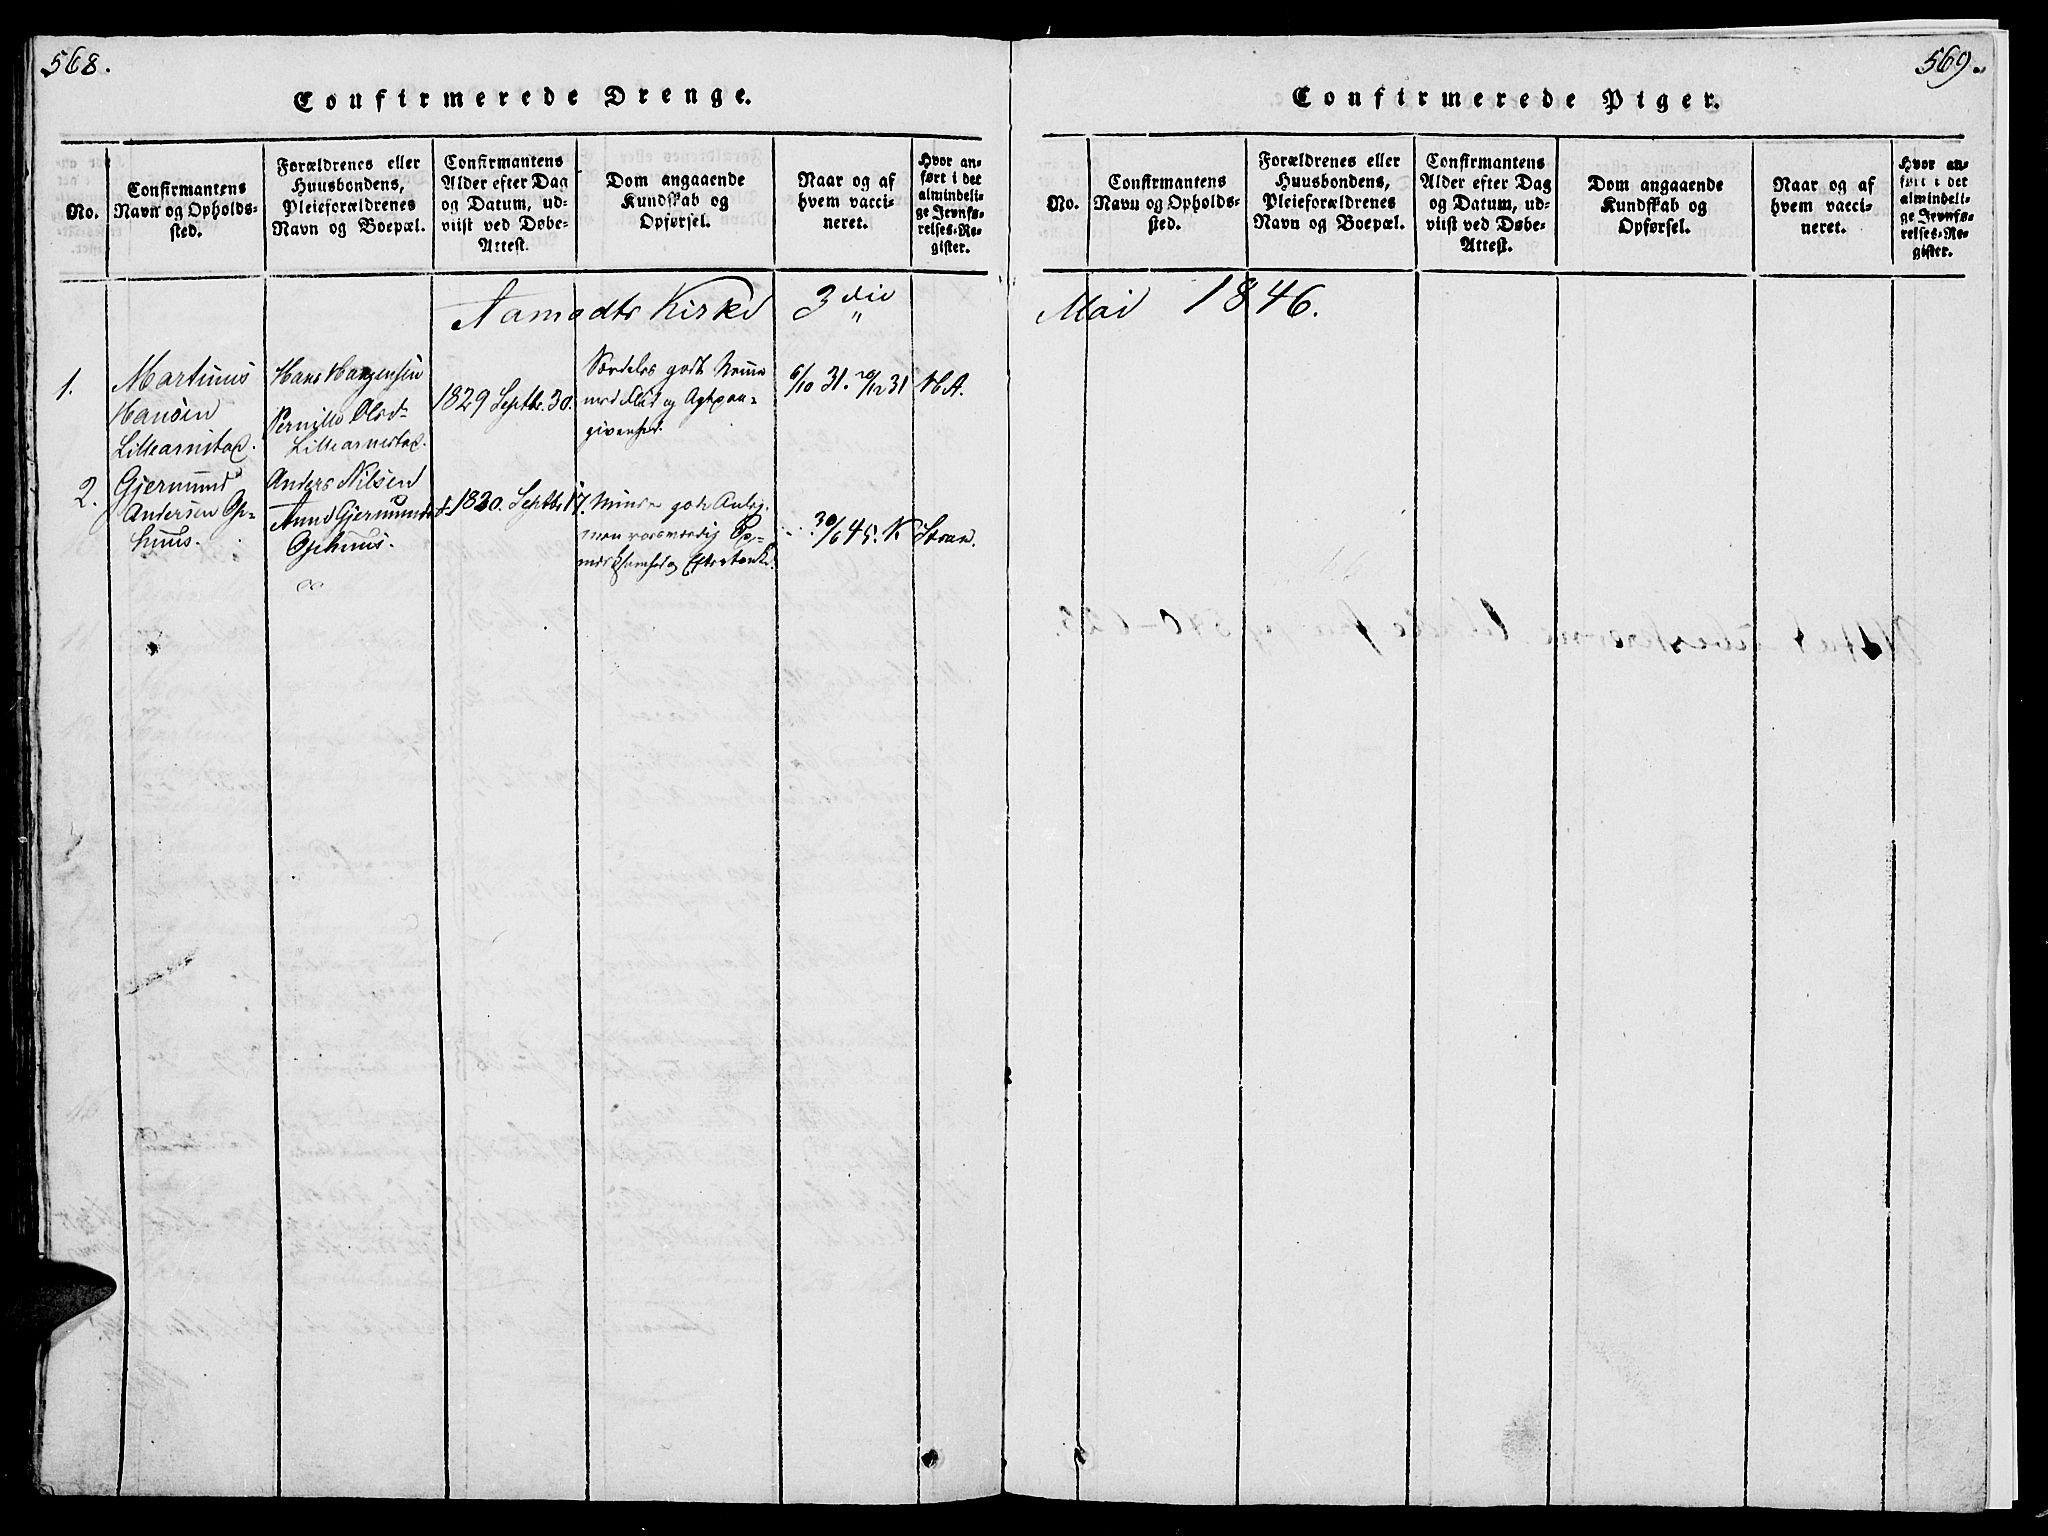 568.
Confirmerede Drenge.
No.
Confirmantens
Navn og Opholds-
sted.
Forældrenes eller
Huusbondens,
Pleieforældrenes
Navn og Boepæl.
Confirmantens
Alder efter Dag
og Datum, ud-
viist ved Døbe-
Attest.
Dom angaaende
Kundskab og
Opførsel.
Naar og af
hvem vacci-
neret.
Hvor an-
ført i det
almindeli-
ge Jevnfø-
relses-Re-
gister.
Aamodts Kirke 3die
1.
Martinus
Hansen
Lillearnstad.
Hans Hansen
Pernille Olsd.
Lillearnstad.
1829 Septbr. 30.
Særdeles godt Nemme
med Flid og Agtpaa-
givenhed.
6/10 31. 20/12 31
2.
Gjermund
Andersen Op-
huus.
Anders Nilsen
Anne Gjermunds d.
Ophuus.
1830. Septbr 17.
30/6 45.
569.
Confirmerede Piger.
No.
Confirmantens
Navn og Opholds-
sted.
Forældrenes eller
Huusbondens,
Pleieforældrenes
Navn og Boepæl.
Confirmantens
Alder efter Dag
og Datum, ud-
viist ved Døbe-
Attest.
Dom angaaende
Kundskab og
Opførsel.
Naar og af
hvem vacci-
neret.
Hvor an-
ført i det
almindeli-
ge Jevnfø-
relses-Re-
gister.
Mai 1846.